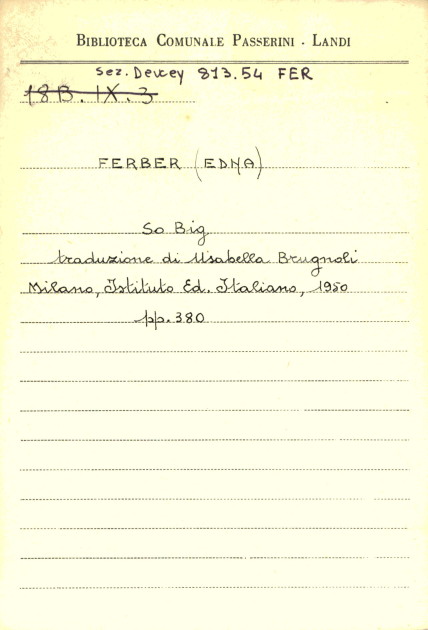 BIBLIOTECA COMUNALE PASSERINI - LANDI
Sez. Dewey 813.54 FER
18B.IX.3
FERBER (EDNA)
So Big
traduzione di Usabella Brugnoli
Milano, Istituto Ed. Italiano, 1950
pp. 380